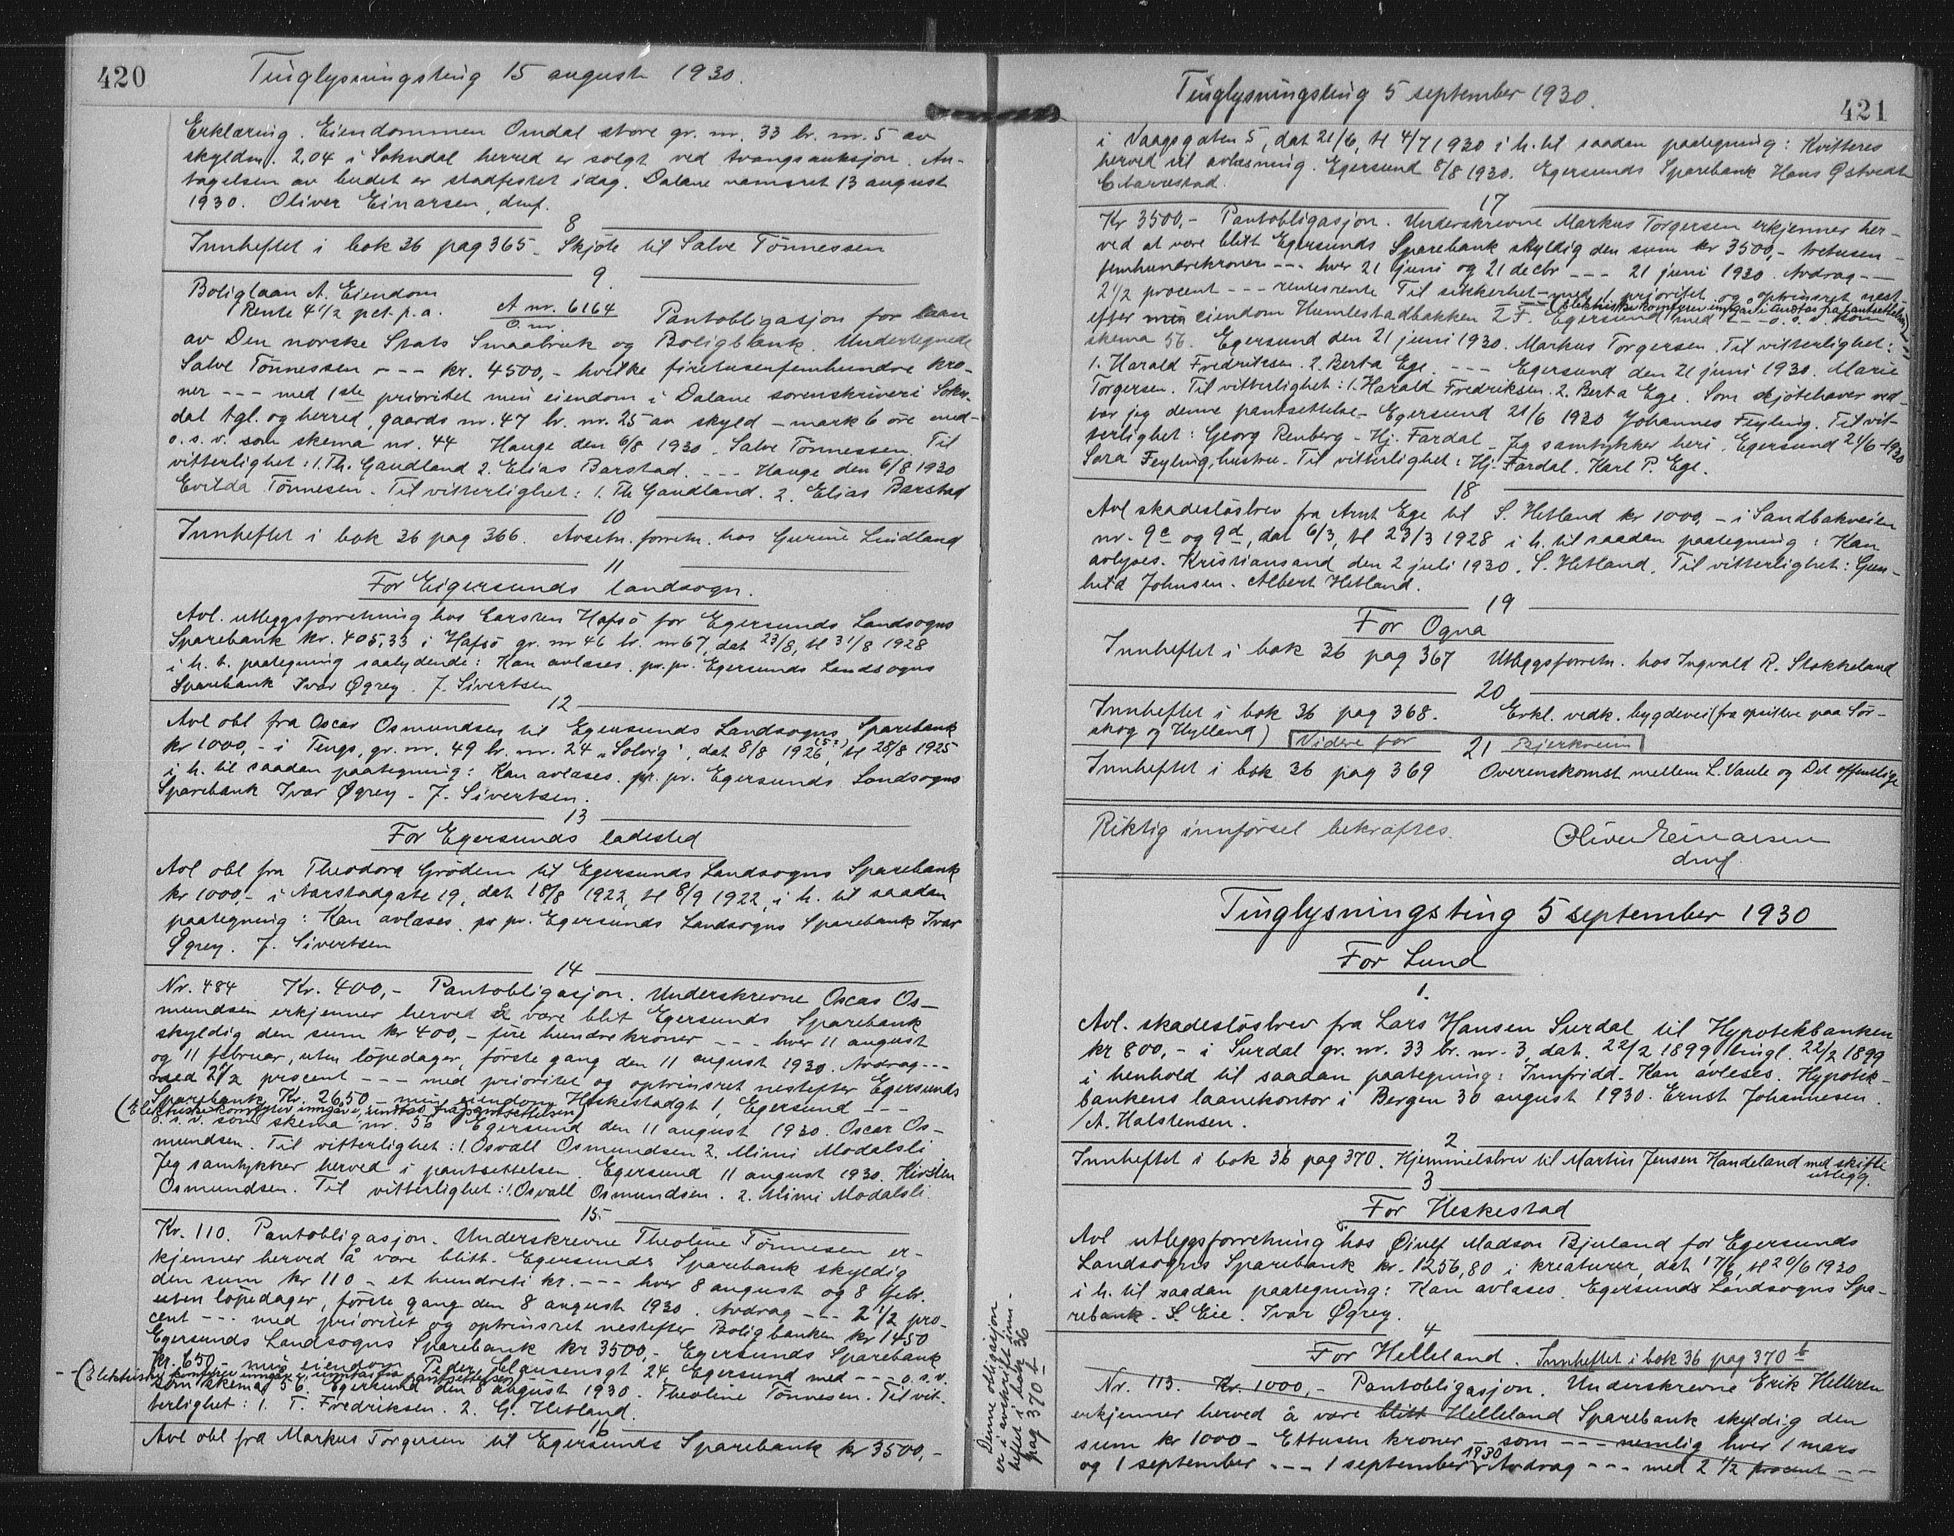 420
Tinglysningsting 15 august 1930.
Erklæring. Eiendommen Omdal store gr. nr. 33 br. nr. 5 av
skyldm. 2,04 i Sokndal herred er solgt ved tvangsauksjon. An-
tagelsen av budet er stadfestet idag. Dalane namsret 13 august
1930. Oliver Einarsen, dmf.
8
Innheftet i bok 36 pag 365. Skjöte til Salve Tönnessen
9.
Boliglaan A. Eiendom
Rente 4 1/2 pct. p. a. A nr. 6164
O. nr. Pantobligasjon for laan
av Den norske Stats Smaabruk og Boligbank. Undertegnede
Salve Tönnessen - - - kr. 4500,- hvilke firetusenfemhundre kro-
ner - - - med 1ste prioritet min eiendom i Dalane sorenskriveri Sokn-
dal tgl. og herred, gaards nr. 47 br. nr. 25 av skyld - mark 6 öre med-
o. s. v. som skema nr. 44 Hauge den 6/8 1930. Salve Tönnessen. Til
vitterlighet: 1. Th. Gaudland 2. Elias Barstad. - - - Hauge den 6/8 1930
Evilda Tönnesen. Til vitterlighet: 1. Th Gaudland. 2. Elias Barstad
10
Innheftet i bok 36 pag 366. Avsetn. forretn. hos Gurine Lindland
11
For Eigersunds landsogn.
Avl. utleggsforretning hos Carsten Hafsö for Egersunds Landsogns
Sparebank kr. 405,33 i Hafsö gr. nr 46 br. nr 67, dat 23/8, tl 31/8 1928
i h. t. paategning saalydende: Kan avlæses. pr. pr. Egersunds Landsogns
Sparebank Ivar Øgrey. J. Sivertsen
12
Avl obl fra Oscar Osmundsen til Egersunds Landsogns Sparebank
kr 1000,- i Tengs, gr. nr. 49 br. nr. 24 "Solvig", dat 8/8 1926 (5?), tl 28/8 1925
i h. til saadan paategning: Kan avlæses. pr. pr. Egersunds Landsogns
Sparebank Ivar Øgrey - J. Sivertsen.
13
For Egersunds ladested
Avl obl fra Theodora Grödem til Egersunds Landsogns Sparebank
kr 1000,- i Aarstadgate 19, dat 18/8 1922, tl 8/9 1922, i h. til saadan
paategning: Kan avlæses. pr pr. Egersunds Landsogns Sparebank Ivar
Øgrey. J. Sivertsen
14
Nr. 484 Kr. 400,- Pantobligasjon. Underskrevne Oscar Os-
mundsen erkjenner herved å være blit Egersunds Sparebank
skyldig den sum kr 400,- fire hundre kroner - - - hver 11 august
og 11 februar, uten löpedager, förste gang den 11 august 1930. Avdrag - - -
med 2 1/2 procent - - - med prioritet og optrinsret nestefter Egersunds
Sparebank Kr. 2650 - min eiendom Heskestadgt 1, Egersund - - -
(Elektriske komfyrer inngår i, unntas fra pantsettelsen)
o. s. v. som skema nr. 56 Egersund den 11 august 1930. Oscar Os-
mundsen. Til vitterlighet: 1. Osvall Osmundsen 2. Mimi Modalsli
Jeg samtykker herved i pantsettelsen. Egersund 11 august 1930. Kirsten
Osmundsen. Til vitterlighet: 1. Osvall Osmundsen. 2. Mimi Modalsli.
15.
Kr. 110. Pantobligasjon. Underskrevne Theoline Tönnesen er-
kjenner herved å være blitt Egersunds Sparebank skyldig
den sum kr 110 - et hundreti kr. - - - hver 8 august og 8 febr.
uten löpedager, förste gang den 8 august 1930. Avdrag - - - 2 1/2 pro-
cent - - - med prioritet og optrinsret nestefter Boligbanken kr 1450
Egersunds Landsogns Sparebank kr 3500,- Egersunds Sparebank
kr. 650,- min eiendom Peder Clausensgt 24, Egersund med - - o. s. v.
(Elektriske komfyrer inngår i, unntas fra pantsettelsen)
som skema 56. Egersund den 8 august 1930. Theoline Tönnesen. Til vit-
terlighet: 1. T. Fredriksen. 2. G. Hetland.
16
Avl obl fra Markus Torgersen til Egersunds Sparebank kr 3500,-
Tinglysningsting 5 september 1930.
421
i Vaagsgaten 5, dat 21/6, tl 4/7 1930 i h. til saadan paategning: Kvitteres
herved til avlæsning. Egersund 8/8 1930. Egersunds Sparebank Hans Østvedt
17
Kr 3500,- Pantobligasjon. Underskrevne Markus Torgersen erkjenner her-
ved at være blitt Egersunds Sparebank skyldig den sum kr 3500,- tretusen-
femhundrekroner - - - hver 21 juni og 21 decbr - - - 21 juni 1930. Avdrag - -
2 1/2 procent - - - rentesrente Til sikkerhet - med 1 prioritet og optrinsret nest-
(Elektriske komfyrer inngår i, unntas fra pantsettelsen)
efter min eiendom Humlestadbakken 2 F. Egersund med - - o. s. v. som
skema 56. Egersund den 21 juni 1930. Markus Torgersen. Til vitterlighet:
1. Harald Fredriksen. 2. Berta Ege. - - - Egersund den 21 juni 1930. Marie
Torgersen. Til vitterlighet: 1. Harald Fredriksen. 2. Berta Ege. Som skjötehaver ved-
tar jeg denne pantsettelse. Egersund 21/6 1930 Johannes Feyling. Til vit-
terlighet: Georg Renberg - Hj. Fardal - Jeg samtykker heri. Egersund 21/6 - 1930
Sara Feyling, hustru. Til vitterlighet: Hj. Fardal. Karl P. Ege.
18
Avl skadeslösbrev fra Arnt Ege til S. Hetland kr 1000,- i Sandbakveien
nr. 9c og 9d, dat 6/3, tl 23/3 1928 i h. til saadan paategning: Kan
avlyses. Kristiansand den 2 juli 1930. S. Hetland. Til vitterlighet: Gun-
hild Johnsen. Albert Hetland.
19
For Ogna
Innheftet i bok 36 pag 367 Utleggsforretn. hos Ingvald R. Stokkeland
20
Innheftet i bok 36 pag 368. Erkl. vedk. bygdevei (fra opsittere paa Sör-
skog og Hylland) Videre for Bjerkreim
21
Innheftet i bok 36 pag 369 Overenskomst mellem L. Vaule og Det offentlige
Riktig innförsel bekræftes. Oliver Einarsen
dmf.
Tinglysningsting 5 september 1930
For Lund
1.
Avl. skadeslösbrev fra Lars Hansen Surdal til Hypotekbanken
kr 800,- i Surdal gr. nr. 33 br. nr. 3, dat. 22/2 1899, tingl. 22/2 1899
i henhold til saadan paategning: Innfridd. Kan avlæses. Hypotek-
bankens laanekontor i Bergen 30 august 1930. Ernst Johannesen.
/A. Halstensen.
2
Innheftet i bok 36 pag 370. Hjemmelsbrev til Martin Jensen Handeland med skifte
utlegg.
3
For Heskestad
Avl utleggsforretning hos Øiulf Madson Bjuland for Egersunds
Landsogns Sparebank kr. 1256,80 i kreaturer, dat 17/6, tl 20/6 1930
i h. til saadan paategning: Kan avlæses. Egersunds Landsogns Spa-
rebank. S. Eie. Ivar Øgrey.
4
For Helleland. Innheftet i bok 36 pag 370 b
Nr. 113. Kr. 1000,- Pantobligasjon. Underskrevne Erik Helleren
erkjenner herved å være blitt Helleland Sparebank skyldig den
sum kr 1000 - Ettusen kroner - som - - - nemlig hver 1 mars
og 1 september - - - 1 september 1930. Avdrag - - - med 2 1/2 procent - - -
Denne obligasjon
er i avskrift inn-
heftet i bok 36
pag 370 b